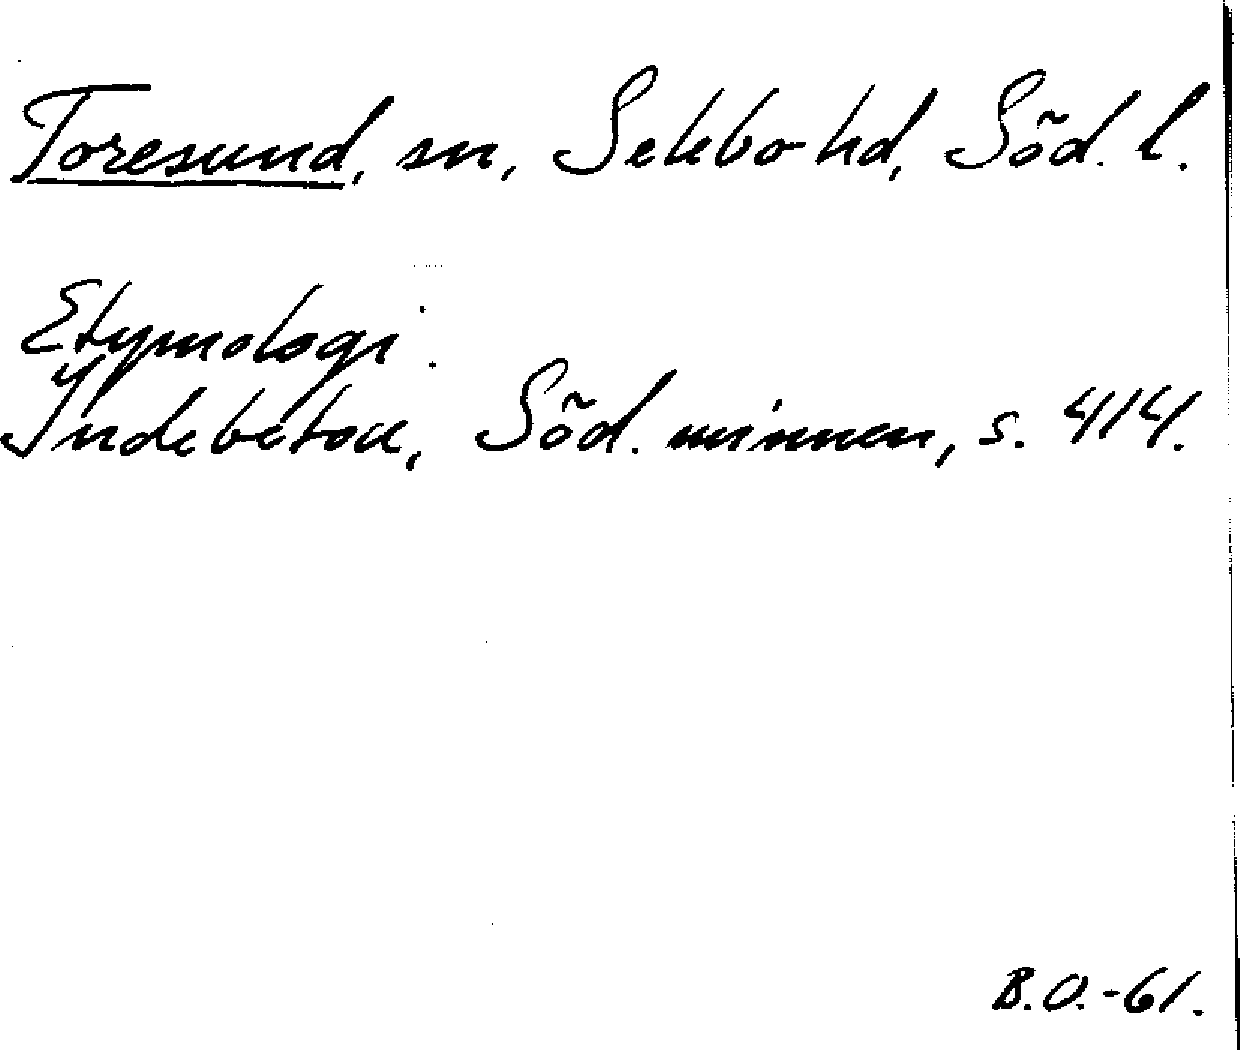 Toresund, sn, Selebo hd, Söd. l.
Etymologi:
Indebetou, Söd. minnen, s. 414.
B.O.-61.